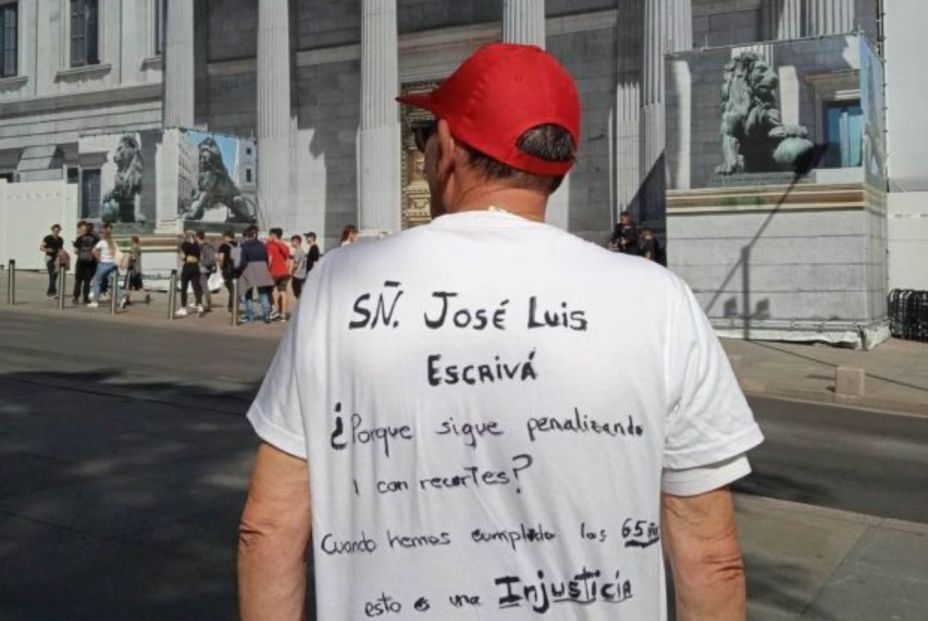 SÑ. José Luis
Escrivá
¿Porque sigue penalizando
i con recortes?
Cuando hemos cumplido los 65
esto es una Injusticia